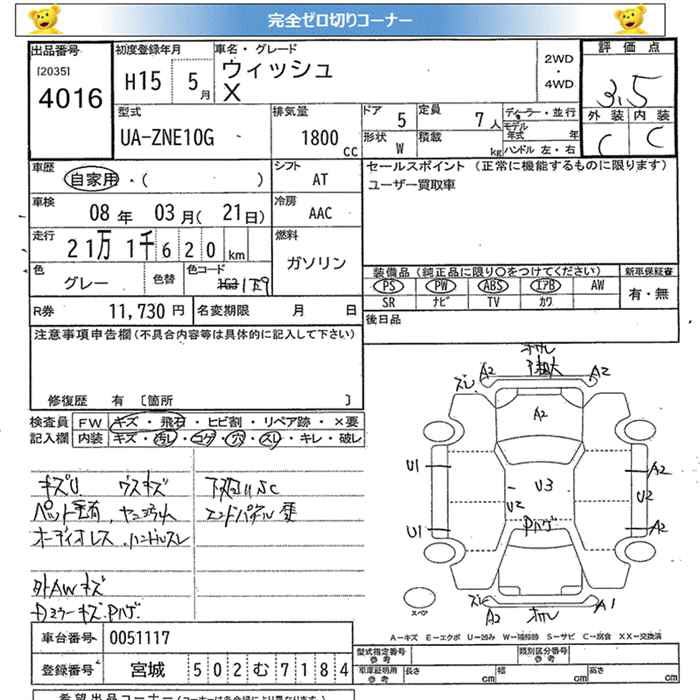 完全ゼロ切りコーナー
出品番号 初度登録年月 車名・グレード 2WD・4WD 評価点
[2035] 4016 H15 5月 ウィッシュ 3.5
X
外装 内装
C C
型式 排気量 ドア 5 定員 7人 ディーラー・並行
UA-ZNE10G 1800cc 形状 W 積載 kg モデル年式 年
ハンドル 左・右
車歴 シフト セールスポイント (正常に機能するものに限ります)
自家用・( ) AT ユーザー買取車
車検 冷房
08年 03月(21日) AAC
走行 燃料
21万 1千 6 2 0 km ガソリン
色 色替 色コード 装備品(純正品に限り○をつけてください) 新車保証書
グレー 1F9 PS PW ABS エアB AW 有・無
SR ナビ TV カワ
R券 11,730円 名変期限 月 日 後日品
注意事項申告欄(不具合内容等は具体的に記入して下さい)
修復歴 有 [箇所 ]
検査員 FW キズ・飛石・ヒビ割・リペア跡・×要
記入欄 内装 キズ・汚レ・コゲ・穴・スレ・キレ・破レ
キズU ウスキズ
オーディオレス ハンドルスレ
エンドパネル
外AWキズ
A2 A2
A2
U1 A2
U3
U2 U2
U1 A2
Pハゲ
A2 A1
スペア
A-キズ E-エクボ U-凹み W-補修跡 S-サビ C-腐食 XX-交換済
車台番号 0051117
型式指定番号 参考 類別区分番号 参考
登録番号 宮城 502む7184
車庫証明用 参考 長さ cm 幅 cm 高さ cm
希望出品コーナー